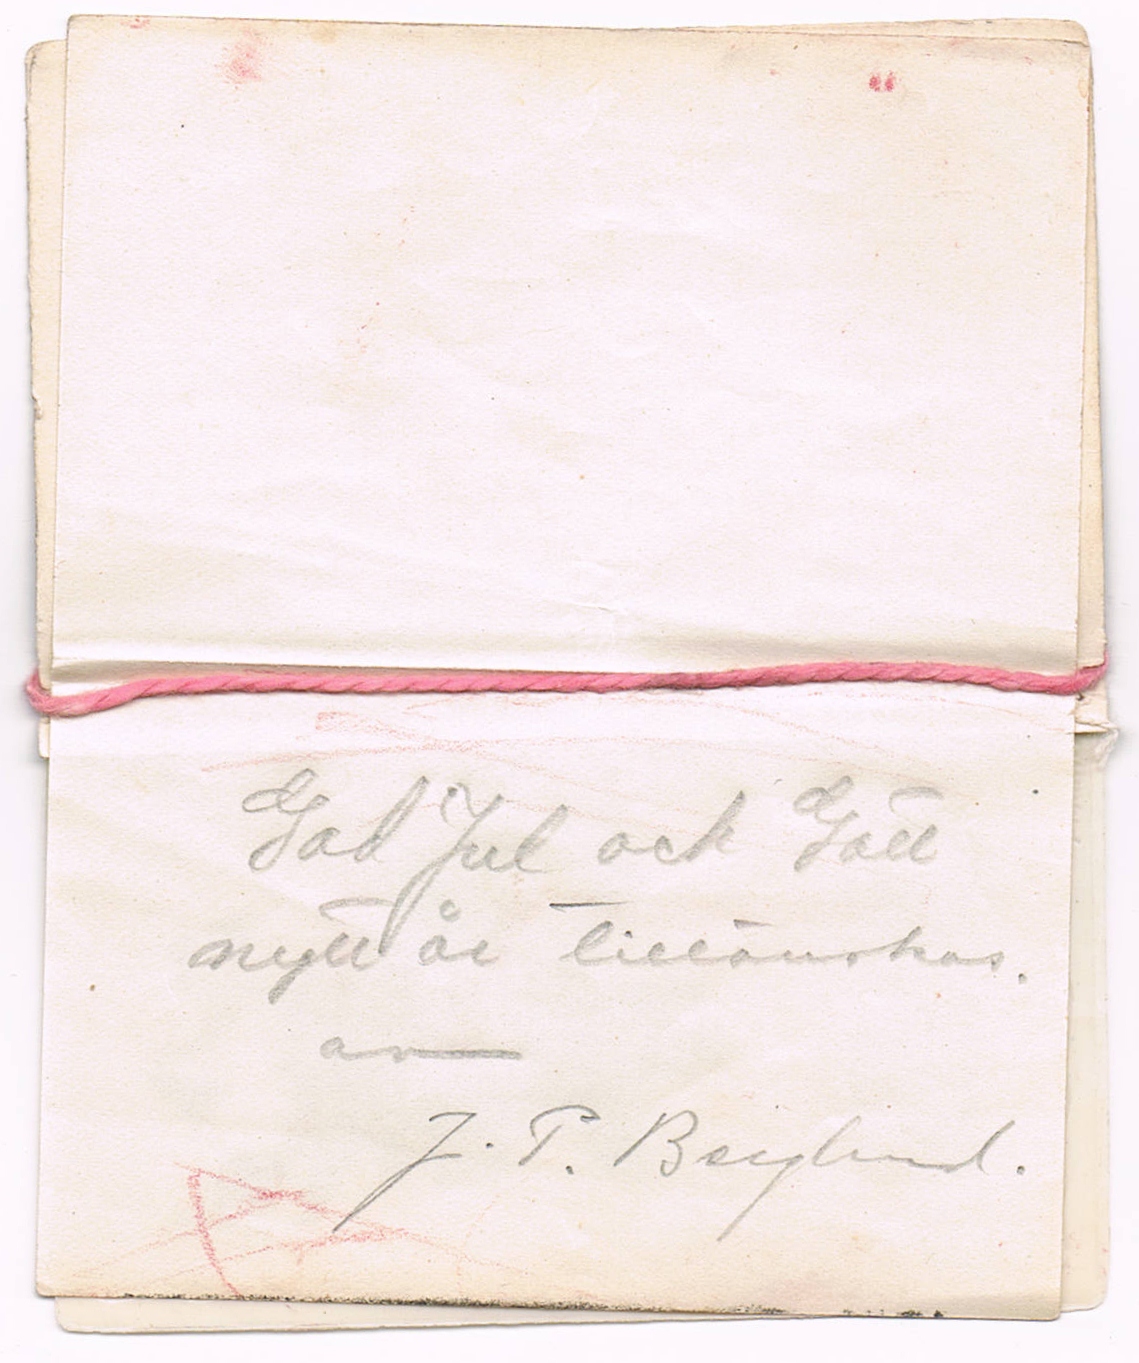 God Jul och Gott
nytt år tillönskas.
av
J. P. Berglund.